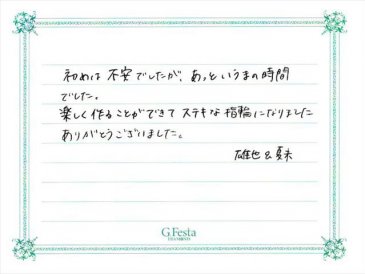 初めは不安でしたが、あっというまの時間
でした。
楽しく作ることができてステキな指輪になりました
ありがとうございました。
雄也&夏未
G.Festa